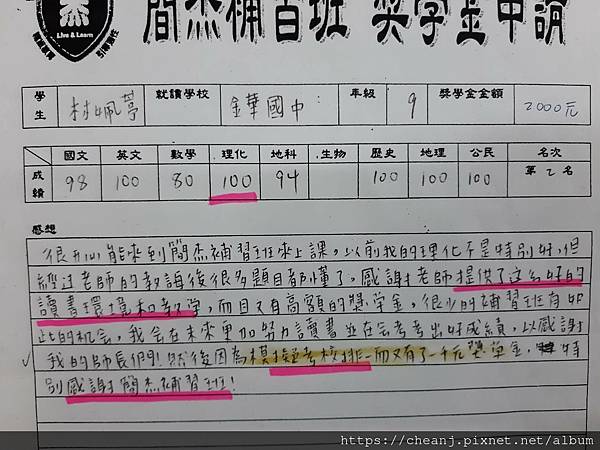 Live & Learn
簡杰補習班 獎學金申請
學生 林姵葶 就讀學校 金華國中 年級 9 獎學金金額 2000元
國文 英文 數學 理化 地科 生物 歷史 地理 公民 名次
成績 98 100 80 100 94 100 100 100 第 2 名
感想
很開心能來到簡杰補習班來上課,以前我的理化不是特別好,但
經過老師的教誨後很多題目都懂了,感謝老師提供了這么好的
讀書環境和教學,而且又有高額的獎學金,很少的補習班有如
此的机会,我會在未來更加努力讀書並在会考考出好成績,以感謝
我的師長們!然後因為模擬考校排一而又有了一千元獎學金,特
別感謝簡杰補習班!
https://cheanj.pixnet.net/album